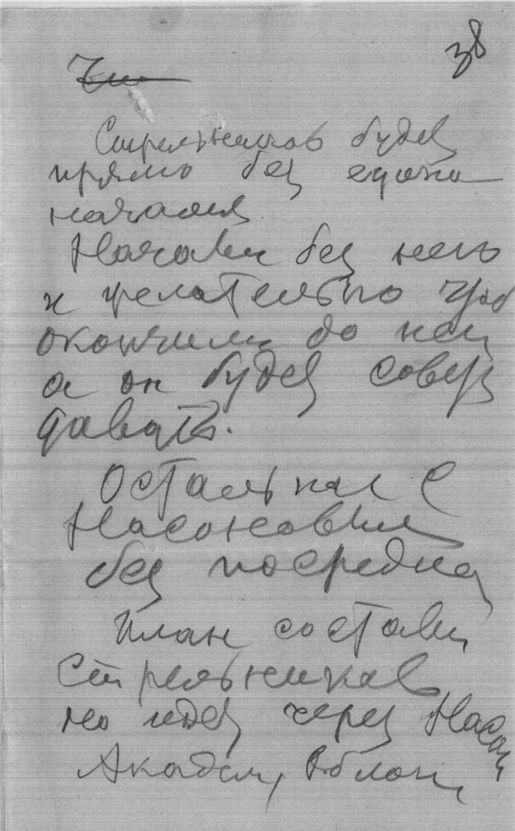 38
Стрельников будет
прямо без
начала
Начали без него
и желательно чтоб
окончили до него
а он будет совет
давать.
Остальные с
Насоновым
без посредна
План состави
Стрельников
но идет через Насон
Академ,